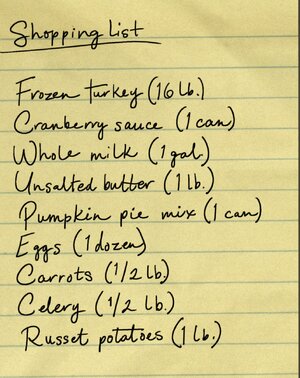 Shopping List
Frozen turkey (16 lb.)
Cranberry sauce (1 can)
Whole milk (1 gal.)
Unsalted butter (1 lb.)
Pumpkin pie mix (1 can)
Eggs (1 dozen)
Carrots (1/2 lb.)
Celery (1/2 lb.)
Russet potatoes (1 lb.)